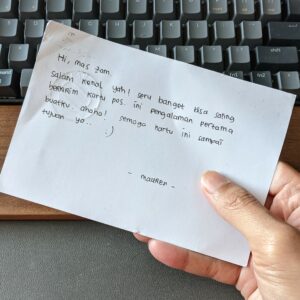 Hi, mas zam.
salam kenal yah! seru banget bisa saling
berkirim kartu pos. ini pengalaman pertama
buatku. ahaha! semoga kartu ini sampai
tujuan ya.. :)
- mauren -